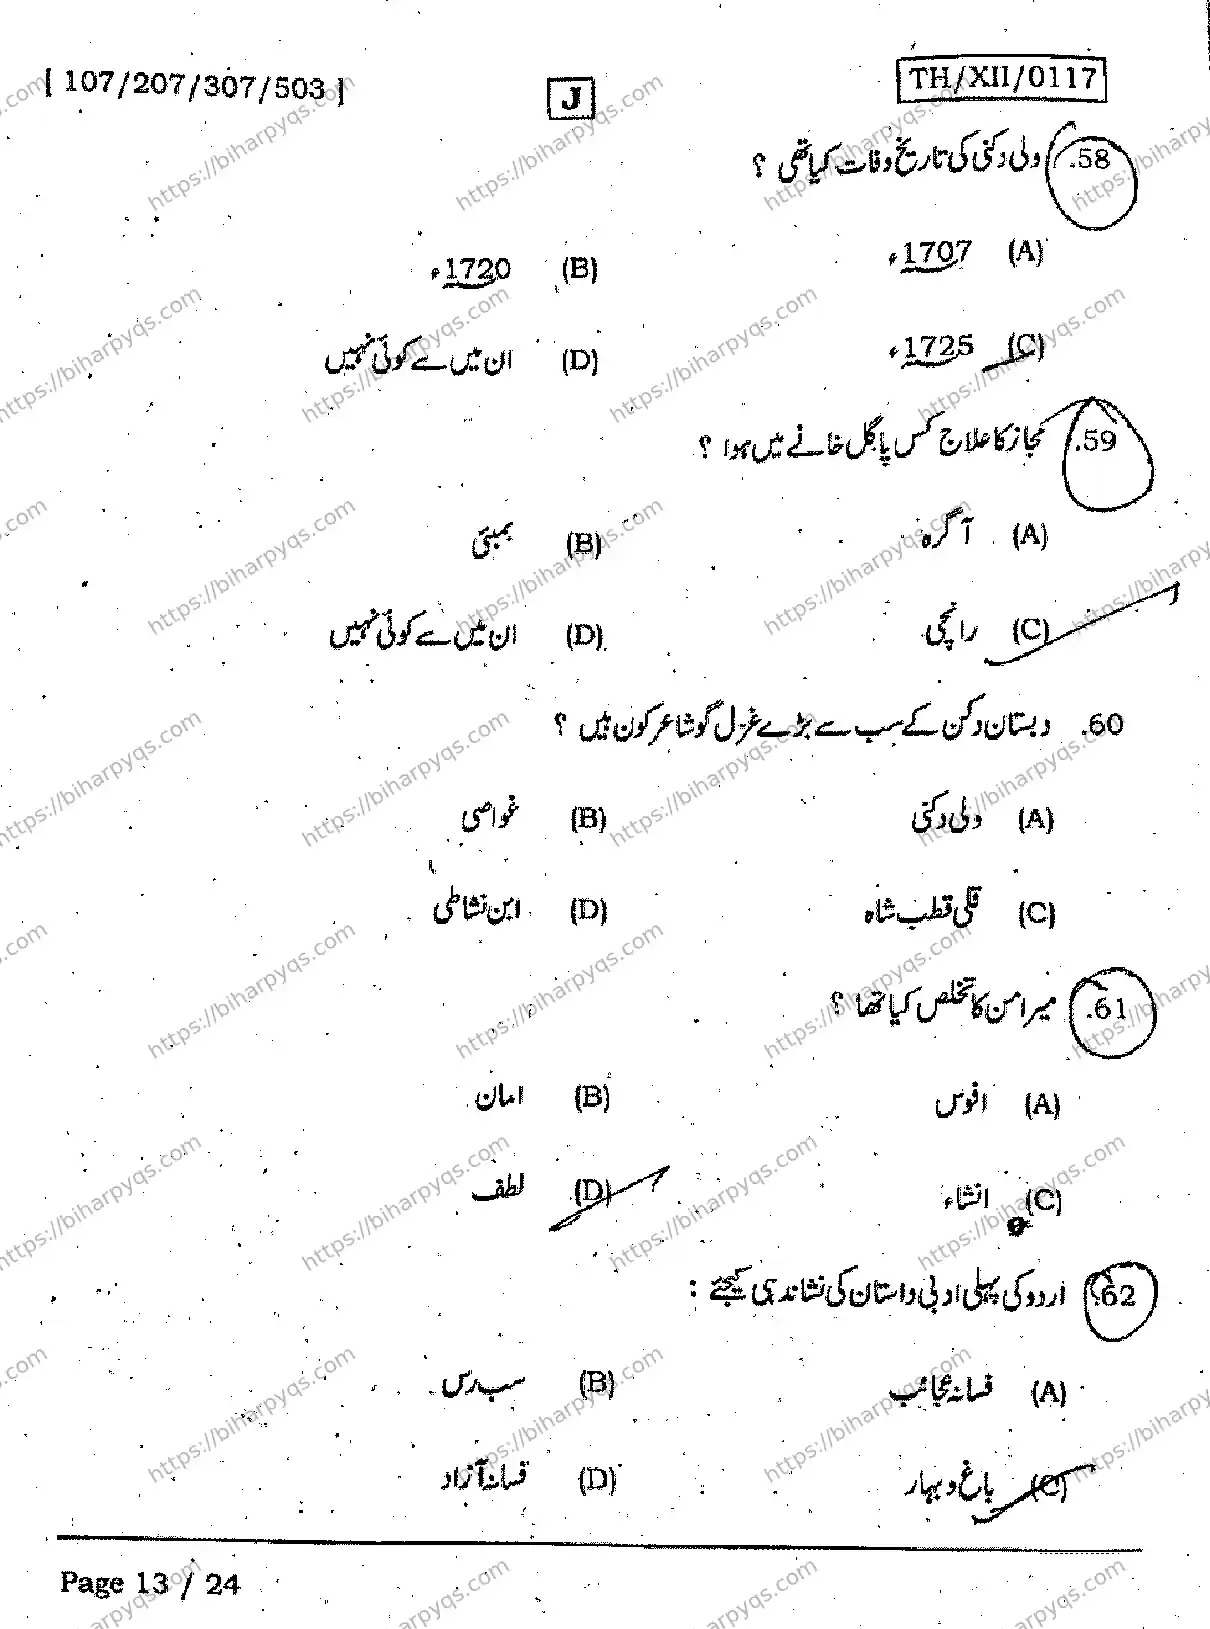 [ 107/207/307/503 ]
J
TH/XII/0117
58. ولی دکنی کی تاریخ وفات کیا تھی ؟
(A) 1707ء
(B) 1720ء
(C) 1725ء
(D) ان میں سے کوئی نہیں
59. مجاز کا علاج کس پاگل خانے میں ہوا ؟
(A) آگرہ
(B) بمبئی
(C) رانچی
(D) ان میں سے کوئی نہیں
60. دبستان دکن کے سب سے بڑے غزل گو شاعر کون ہیں ؟
(A) ولی دکنی
(B) غواصی
(C) قلی قطب شاہ
(D) ابن نشاطی
61. میر امن کا تخلص کیا تھا ؟
(A) افوس
(B) امان
(C) انشاء
(D) لطف
62. اردو کی پہلی ادبی داستان کی نشاندہی کیجئے :
(A) فسانہ عجائب
(B) سب رس
(C) باغ و بہار
(D) فسانہ آزاد
Page 13 / 24
https://biharpyqs.com